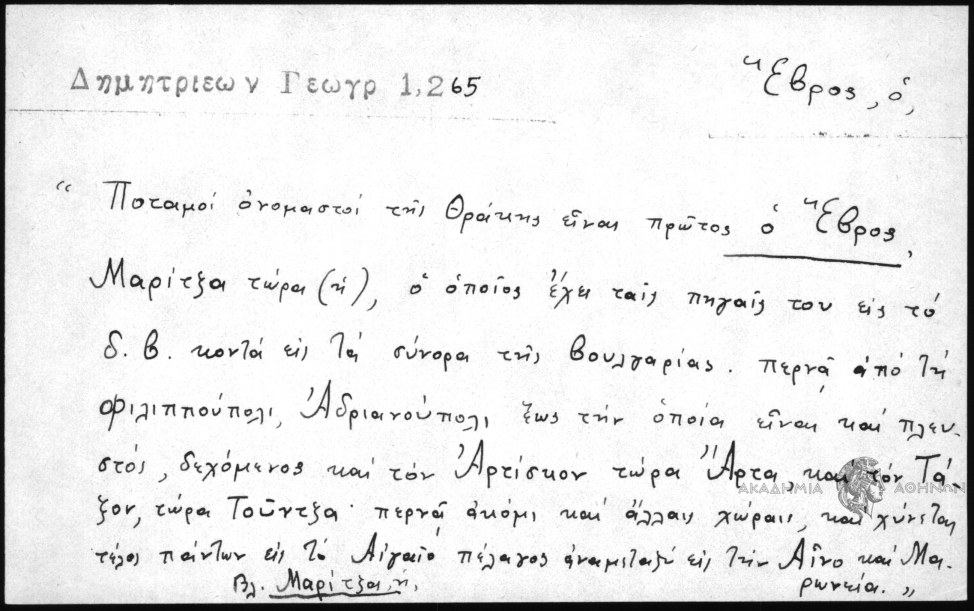 Δημητριεων Γεωγρ 1,265
Ἕβρος, ὁ,
“ Ποταμοί ὀνομαστοί τῆς Θράκης εἶναι πρῶτος ὁ Ἕβρος,
Μαρίτζα τώρα (ἡ), ὁ ὁποῖος ἔχει ταῖς πηγαῖς του εἰς τό
δ. β. κοντά εἰς τά σύνορα τῆς Βουλγαρίας. περνᾶ ἀπό τή
Φιλιππούπολι, Ἀδριανούπολι ἕως τήν ὁποία εἶναι καί πλευ-
στός, δεχόμενος καί τόν Ἀρτίσκον τώρα Ἄρτα, καί τόν Τά-
ξον, τώρα Τοῦντζα· περνᾶ ἀκόμι καί ἄλλαις χώραις, καί χύνεται
τέλος πάντων εἰς τό Αἰγαῖο πέλαγος ἀναμεταξύ εἰς τήν Αἶνο καί Μα-
ρωνεία. „
Βλ. Μαρίτζα, ἡ,
ΑΚΑΔΗΜΙΑ ΑΘΗΝΩΝ